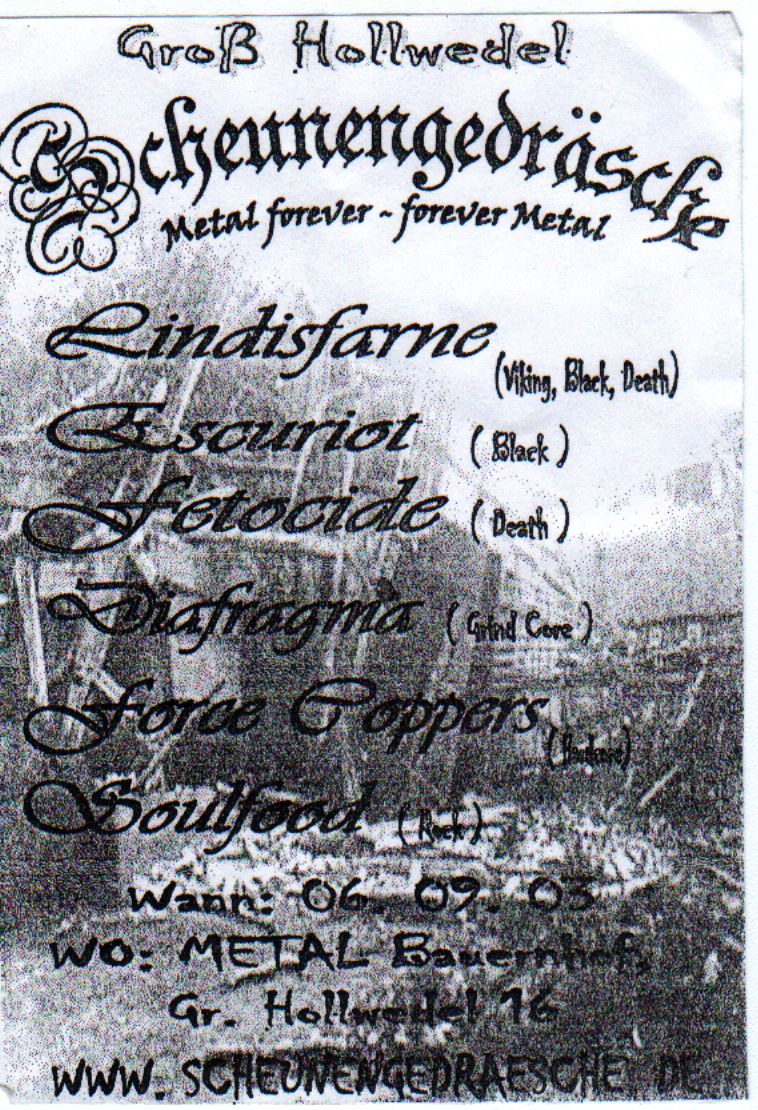 Groß Hollwedel
Scheunengedräsche
Metal forever ~ forever Metal
Lindisfarne
(Viking, Black, Death)
Escuriot ( Black )
Fetocide ( Death )
Diafragma ( Grind Core )
Force Coppers
( Hardcore)
Soulfood ( Rock )
Wann: 06. 09. 03
WO: METAL Bauernhof,
Gr. Hollwedel 16
WWW. SCHEUNENGEDRAESCHE. DE